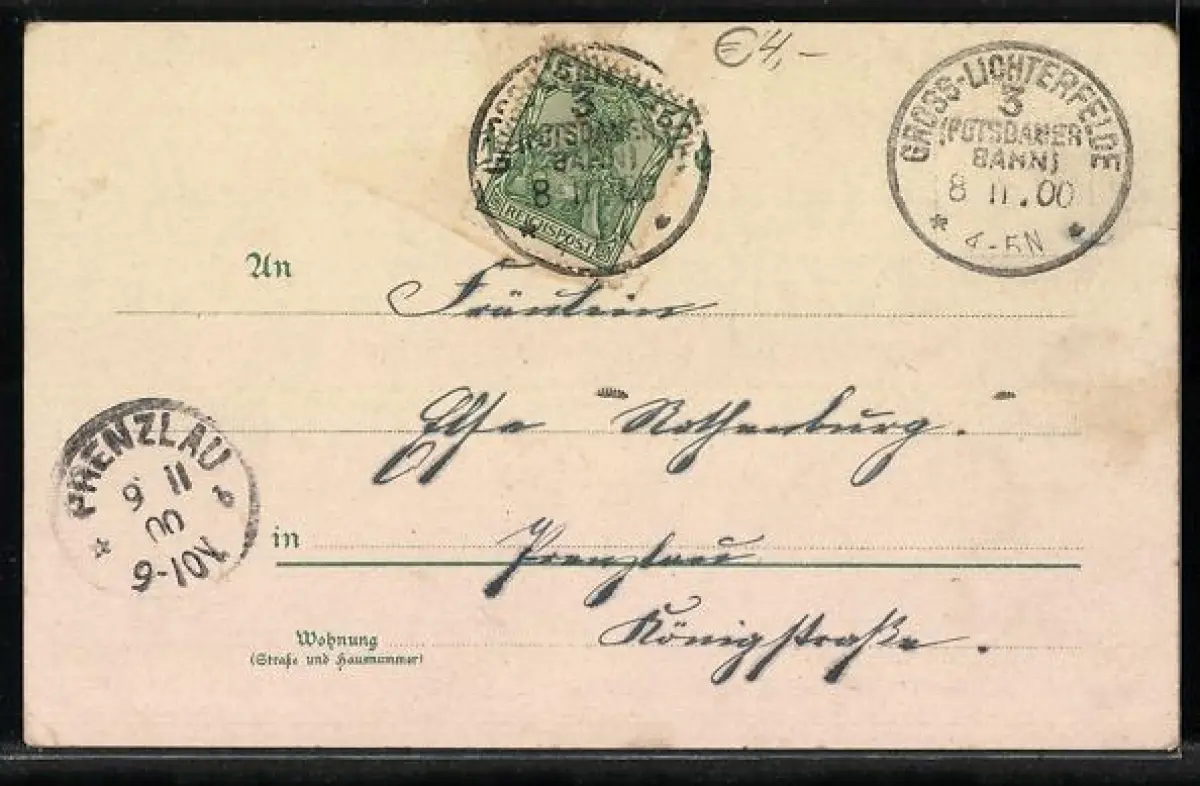 €4,-
3
(POTSDAMER
BAHN)
8 11.00
REICHSPOST
GROSS-LICHTERFELDE
3
(POTSDAMER
BAHN)
8 11.00
* 4-5N *
An
Fräulein
Elsa Rothenburg.
PRENZLAU
9 11
00
9-10N
in
Prenzlau
Wohnung
Königstraße.
(Straße und Hausnummer)